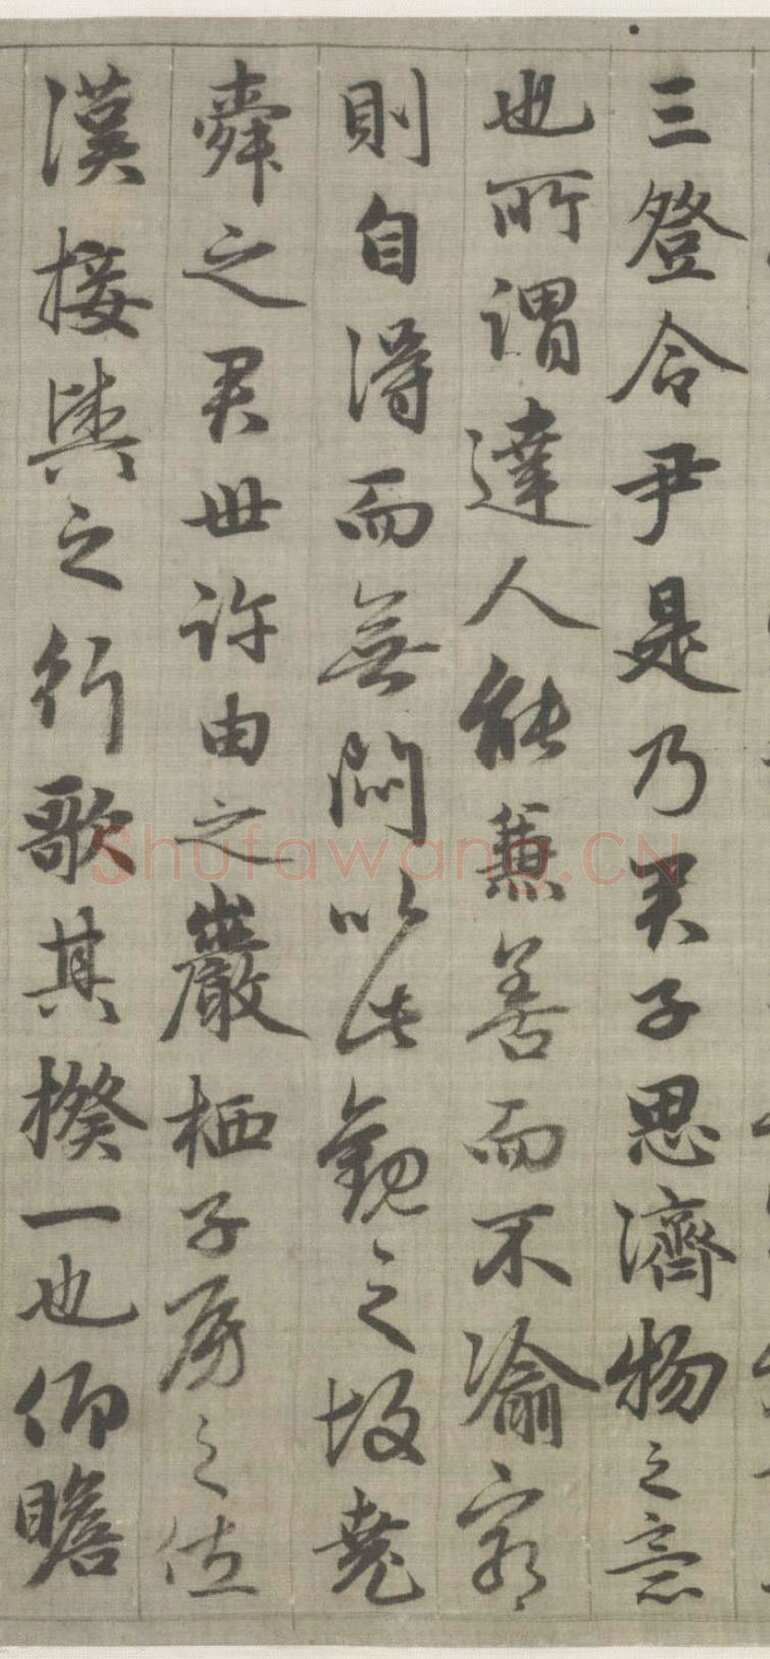 三登令尹是乃君子思濟物之意
也所謂達人能兼善而不渝窮
則自得而無悶以此觀之故堯
舜之君世許由之巖栖子房之佐
漢接輿之行歌其揆一也仰瞻
Shufawang.CN